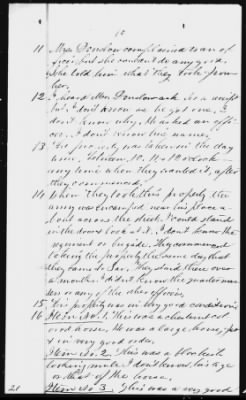 10
11 Mrs Dondon complained to an of
ficer, but she couldn't do any good.
She told him what they took from
her.
12. I heard Mrs Dondon ask for a recipt
but I don't know as he got one, I
don't know why. He asked an offi-
cer. I don't know his name,
13. The property was taken in the day
time. Between 10. 11 & 12 o'clock
any time when they wanted it, after
they commenced,
14. When they took this property the
army was encamped near his place a-
bout across the street. I could stand
in the door & look at it. I don't know the
regiment or brigade. They commenced
taking the property the same day that
they came to Sav. They staid there over
a month. I didn't know the quartermas-
ters or any of the other officers.
15. This property was in very good condition
16 Item No. 1. This was a chestnut col
ored horse. He was a large horse, fat
& in very good order.
Item No. 2. This was a blackish
looking mule. I don't know his age
or that of the horse.
Item No. 3. This was a very good
21